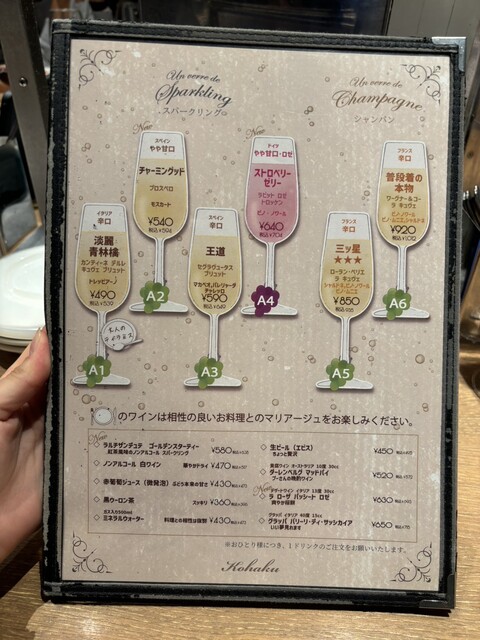 Un verre de
Sparkling
スパークリング
Un verre de
Champagne
シャンパン
イタリア
辛口
淡麗
青林檎
カンティーネ デルレ
キュヴェ ブリュット
トレッビアーノ
¥490
税込¥539
A1
大人の
New
スペイン
やや甘口
チャーミングッド
プロスペロ
セミスカード
¥540
税込¥594
A2
スペイン
辛口
王道
セグラヴューダス
ブリュット
マカベオ,パレリャーダ
チャレッロ
¥590
税込¥649
A3
New
ドイツ
やや甘口・ロゼ
ストロベリー
ゼリー
ラビット ロゼ
トロッケン
ピノ・ノワール
¥640
税込¥704
A4
フランス
辛口
三ッ星
★★★
ローラン・ペリエ
ラ キュヴェ
シャルドネ,ピノ・ノワール
ピノ・ムニエ
¥850
税込935
A5
フランス
辛口
普段着の
本物
ワーグナールゴー
ラ キュヴェ
ピノ・ノワール
ピノ・ムニエ,シャルドネ
¥920
税込1012
A6
のワインは相性の良いお料理とのマリアージュをお楽しみください。
New
ラルチザンデュテ ゴールデンスターティー
紅茶風味のノンアルコール スパークリング ¥580
ノンアルコール 白ワイン 華やかドライ ¥470
赤葡萄ジュース（微発泡） ぶどう本来の甘さ ¥430
黒ウーロン茶 スッキリ ¥360
ガス入り500ml
ミネラルウォーター 料理との相性は抜群 ¥430
生ビール（エビス） ¥450
ちょっと贅沢
貴腐ワイン オーストラリア 10度 50cc
ダーレンベルグ マッドバイ ¥520
プーさんの晩酌ワイン
New
デザートワイン イタリア 15度 30cc
ラ ローザ パッシート ロゼ ¥630
爽やか桜餅
グラッパ イタリア 40度 15cc
グラッパ バリーリ・ディ・サッシカイア ¥650
いい夢見れます
※おひとり様につき、1ドリンクのご注文をお願いいたします。
Kohaku